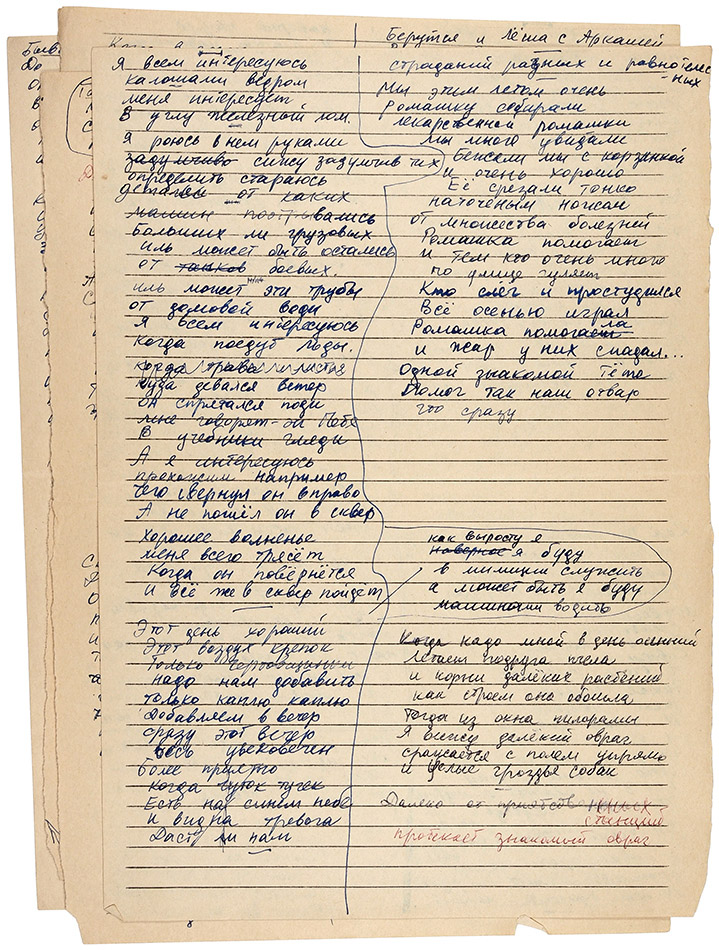 Берутся и Лёша с Аркашей
Я всем интересуюсь
калошами ведром
меня интересует
В углу железный лом.
Я роюсь в нем руками
задумчиво сижу задумчив тих
определить стараюсь
от каких
машин вались
больших ли грузовых
иль может быть остались
от танков боевых.
иль может эти трубы
от домовой воды
Я всем интересуюсь
Когда пойдут льды.
когда трава и листья
куда девался ветер
он спрятался поди
мне говорят-эй Петя
В учебники гляди
А я интересуюсь
прохожим например
чего свернул он вправо
А не пошёл он в сквер
Хорошее волненье
меня всего трясёт
Когда он повёрнётся
И всё же в сквер пойдёт
Этот день хороший
Этот воздух крепок
Только
надо нам добавить
только каплю каплю
Добавляем в ветер
сразу этот ветер
весь увековечен
более приятно
когда чуток тучек
Есть на синем небе
и видна тревога
Даст ли нам
страданий разных и равнотелес
-ных
Мы этим летом очень
Ромашку собирали
лекарственной ромашки
мы много увидали
Бежали мы с корзинкой
и очень хорошо
Её срезали тонко
наточеным ножом
от множества болезней
Ромашка помогает
и тем кто очень много
по улице гуляет
Кто слёг и простудился
Всё осенью играл
Ромашка помогает ла
и жар у них спадал...
Одной знакомой тёте
Помог так наш отвар
что сразу
как выросту я
наверное я буду
в милиции служить
а может быть я буду
машинами водить
Когда надо мной в день осенний
Летает подруга пчела
и корни далёких растений
как строем она обошла
Тогда из окна пилорамы
Я вижу далёкий овраг
сражается с полем упрямо
и целые гроздья собак
Далеко от
станций
протекает знакомый овраг